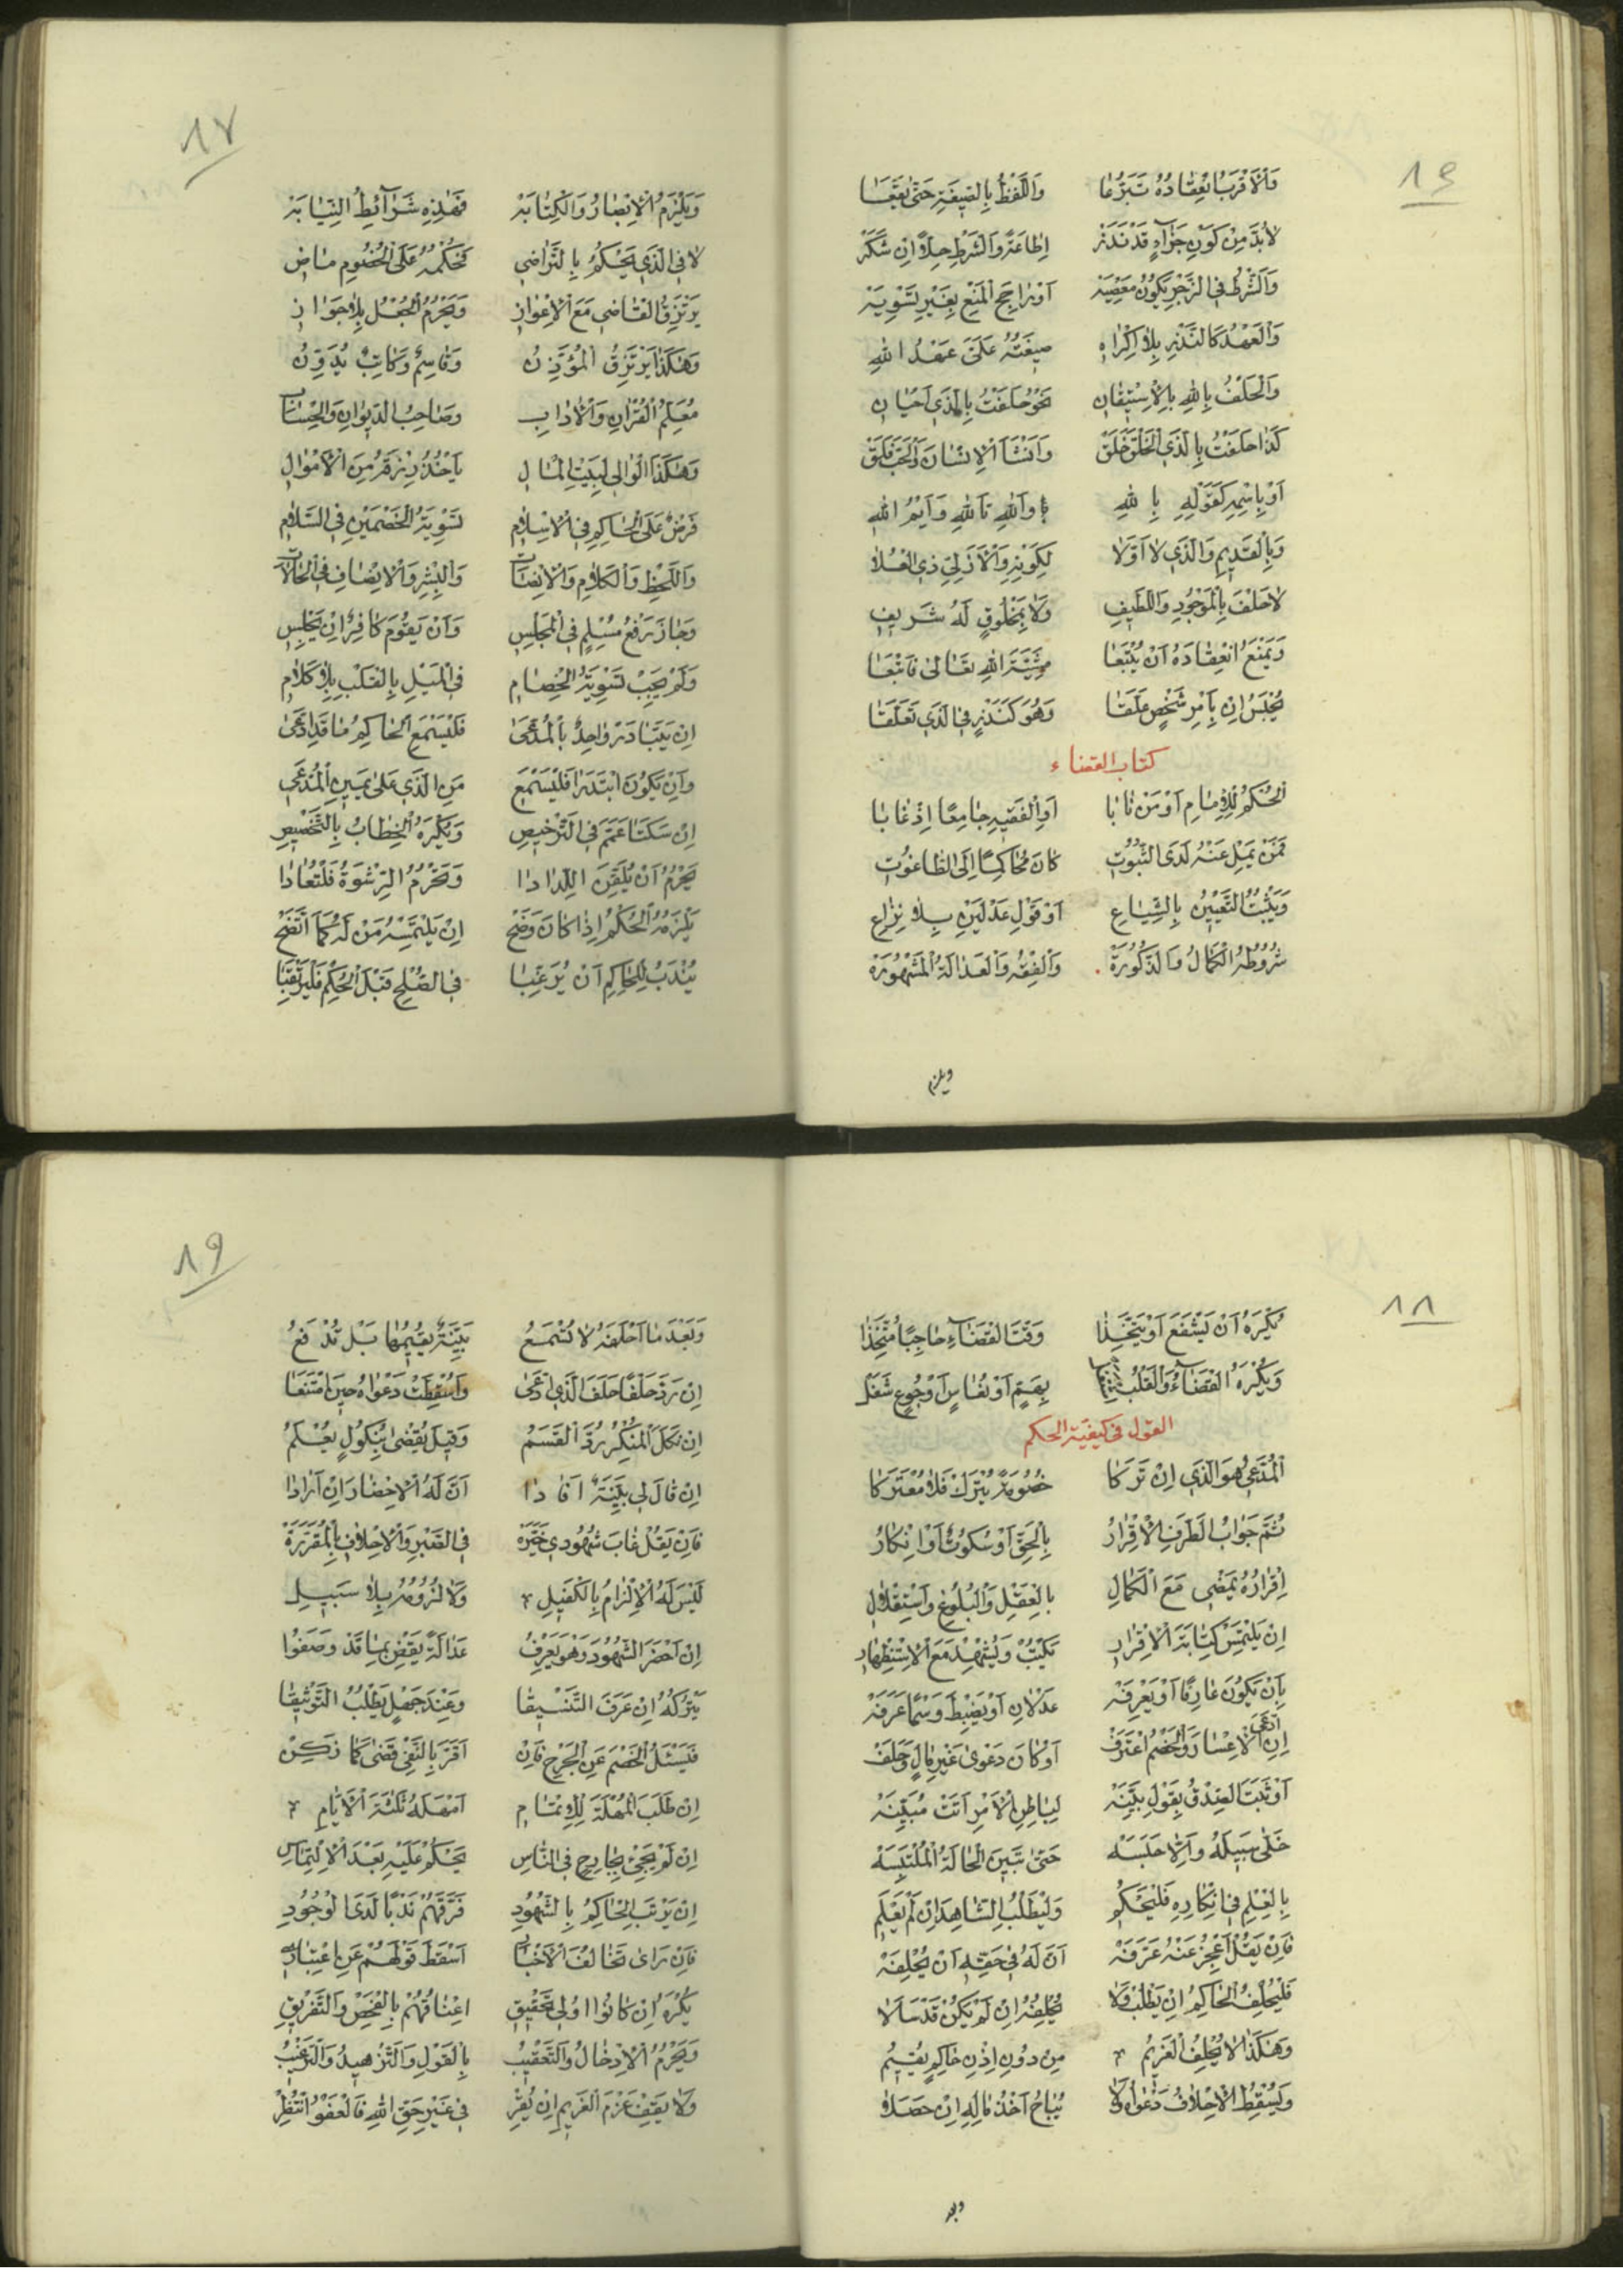 ١٦
وَالْأَقْرَبُ انْعِقَادُهُ تَبَرُّعَا وَاللَّفْظُ بِالصِّيغَةِ حَتَّى يَقَعَا
لَابُدَّ مِنْ كَوْنِ جَزَاءٍ قَدْ نَذَرْ إِطَاعَةً وَالشَّرْطِ حِلًّا إِنْ شَكَرْ
وَالشَّرْطُ فِي الزَّجْرِ يَكُونُ مَعْصِيَهْ أَوْ رَاجِحَ الْمَنْعِ بِغَيْرِ تَسْوِيَهْ
وَالْعَهْدُ كَالنَّذْرِ بِلَا إِكْرَاهِ صِيغَتُهُ عَلَيَّ عَهْدُ اللهِ
وَالْحَلْفُ بِاللهِ بِالْاِسْتِيقَانِ نَحْوُ حَلَفْتُ بِالَّذِي أَحْيَانِ
كَذَا حَلَفْتُ بِالَّذِي الْخَلْقَ خَلَقْ وَأَنْشَأَ الْإِنْسَانَ وَالْحَبَّ فَلَقْ
أَوْ بِاسْمِهِ كَقَوْلِهِ بِاللهِ وَاللهِ تَاللهِ وَأَيْمُ اللهِ
وَبِالْقَدِيمِ وَالَّذِي لَا أَوَّلَا لِكَوْنِهِ وَالْأَزَلِيِّ ذِي الْعُلَا
لَا حَلْفَ بِالْمَوْجُودِ وَاللَّطِيفِ وَلَا بِمَخْلُوقٍ لَهُ شَرِيفِ
وَيَمْنَعُ انْعِقَادَهُ أَنْ يُتْبَعَا مَشِيَّةَ اللهِ تَعَالَى فَاتْبَعَا
يُحْبَسُ إِنْ بِأَمْرِ شَخْصٍ عَلَّقَا وَهُوَ كَنَذْرٍ فِي الَّذِي تَعَلَّقَا
كتاب القضاء
اَلْحُكْمُ لِلْإِمَامِ أَوْ مَنْ نَابَا أَوِ الْفَقِيهِ جَامِعًا إِذْ غَابَا
فَمَنْ يَمِلْ عَنْهُ لَدَى الثُّبُوتِ كَانَ مُحَاكِمًا إِلَى الطَّاغُوتِ
وَيَثْبُتُ التَّعْيِينُ بِالشِّيَاعِ أَوْ قَوْلِ عَدْلَيْنِ بِلَا نِزَاعِ
شُرُوطُهُ الْكَمَالُ وَالذُّكُورَةْ وَالْفِقْهُ وَالْعَدَالَةُ الْمَشْهُورَهْ
ويلزم
١٧
وَيَلْزَمُ الْإِبْصَارُ وَالْكِتَابَهْ فَهَذِهِ شَرَائِطُ النِّيَابَهْ
لَا فِي الَّذِي يَحْكُمُ بِالتَّرَاضِي فَحُكْمُهُ عَلَى الْخُصُومِ مَاضِ
يَرْتَزِقُ الْقَاضِي مَعَ الْإِعْوَازِ وَيَحْرُمُ الْجُعْلُ بِلَا جَوَازِ
وَهَكَذَا يَرْتَزِقُ الْمُؤَذِّنُ وَقَاسِمٌ وَكَاتِبٌ يُدَوِّنُ
مُعَلِّمُ الْقُرْآنِ وَالْآدَابِ وَصَاحِبُ الدِّيوَانِ وَالْحِسَابِ
وَهَكَذَا الْوَالِي لِبَيْتِ الْمَالِ يَأْخُذُ رِزْقَهُ مِنَ الْأَمْوَالِ
فَرْضٌ عَلَى الْحَاكِمِ فِي الْإِسْلَامِ تَسْوِيَةُ الْخَصْمَيْنِ فِي السَّلَامِ
وَاللَّحْظِ وَالْكَلَامِ وَالْإِنْصَاتِ وَالْبِشْرِ وَالْإِنْصَافِ فِي الْحَالَاتِ
وَجَازَ رَفْعُ مُسْلِمٍ فِي الْمَجْلِسِ وَأَنْ يَقُومَ كَافِرٌ إِنْ يَجْلِسِ
وَلَمْ يَجِبْ تَسْوِيَةُ الْخِصَامِ فِي الْمَيْلِ بِالْقَلْبِ بِلَا كَلَامِ
إِنْ يَتَبَادَرْ وَاحِدٌ بِالْمُدَّعَى فَلْيَسْمَعِ الْحَاكِمُ مَا قَدِ ادَّعَى
وَإِنْ يَكُونَ ابْتَدَرَا فَلْيَسْمَعِ مَنِ الَّذِي عَلَى يَمِينِ الْمُدَّعِي
إِنْ سَكَتَا عَمَّمَ فِي التَّرْخِيصِ وَيُكْرَهُ الْخِطَابُ بِالتَّخْصِيصِ
يَحْرُمُ أَنْ يُلَقِّنَ اللِّدَادَا وَتَحْرُمُ الرِّشْوَةُ فَلْتُعَادَا
يَلْزَمُهُ الْحُكْمُ إِذَا كَانَ وَضَحْ إِنْ يَلْتَمِسْهُ مَنْ لَهُ كَمَا اتَّضَحْ
يُنْدَبُ لِلْحَاكِمِ أَنْ يُرَغِّبَا فِي الصُّلْحِ قَبْلَ الْحُكْمِ فَلْيَرْتَقِبَا
١٨
يُكْرَهُ أَنْ يَشْفَعَ أَوْ يَتَّخِذَا وَقْتَ الْقَضَاءِ حَاجِبًا مُتَّخَذَا
وَيُكْرَهُ الْقَضَاءُ وَالْقَلْبُ بِهَمٍّ أَوْ نُعَاسٍ أَوْ جُوعٍ شَغَلْ
القول في كيفية الحكم
اَلْمُدَّعِي هُوَ الَّذِي إِنْ تَرَكَا خُصُومَةً يُتْرَكْ فَلَا مُعْتَرَكَا
ثُمَّ جَوَابُ الطَّرَفِ الْإِقْرَارُ بِالْحَقِّ أَوْ سُكُوتٌ أَوْ إِنْكَارُ
إِقْرَارُهُ يَمْضِي مَعَ الْكَمَالِ بِالْعَقْلِ وَالْبُلُوغِ وَاسْتِقْلَالِ
إِنْ يَلْتَمِسْ كِتَابَةَ الْإِقْرَارِ تُكْتَبْ وَيُشْهِدْ مَعَ الْاِسْتِظْهَارِ
بِأَنْ يَكُونَ عَارِفًا أَوْ يَعْرِفَهْ عَدْلَانِ أَوْ يَضْبِطَ وَسْمًا عَرَّفَهْ
إِنِ ادَّعَى الْإِعْسَارَ وَالْخَصْمُ اعْتَرَفْ أَوْ كَانَ دَعْوَى غَيْرِ مَالٍ وَحَلَفْ
أَوْ ثَبَتَ الصِّدْقُ بِقَوْلِ بَيِّنَهْ لِبَاطِنِ الْأَمْرِ أَتَتْ مُبَيِّنَهْ
خَلَّى سَبِيلَهُ وَإِلَّا حَبَسَهْ حَتَّى تَبِينَ الْحَالَةُ الْمُلْتَبِسَهْ
بِالْعِلْمِ فِي إِنْكَارِهِ فَلْيَحْكُمِ وَلْيَطْلُبِ الشَّاهِدَ إِنْ لَمْ يَعْلَمِ
فَإِنْ يَقُلْ أَعْجِزُ عَنْهُ عَرَّفَهْ أَنَّ لَهُ فِي حَقِّهِ أَنْ يُحْلِفَهْ
فَلْيُحْلِفِ الْحَاكِمُ إِنْ يَطْلُبْ وَلَا يُحْلِفُهُ إِنْ لَمْ يَكُنْ قَدْ سَأَلَا
وَهَكَذَا لَا يُحْلِفُ الْغَرِيمُ مِنْ دُونِ إِذْنِ حَاكِمٍ يُقِيمُ
وَيُسْقِطُ الْإِحْلَافُ دَعْوَاهُ وَلَا يُبَاحُ أَخْذُ مَالِهِ إِنْ حَصَلَا
وبعد
١٩
وَبَعْدَ مَا أَحْلَفَهُ لَا تُسْمَعُ بَيِّنَةٌ يُقِيمُهَا بَلْ تُدْفَعُ
إِنْ رَدَّ حَلْفًا حَلَفَ الَّذِي ادَّعَى وَأُسْقِطَتْ دَعْوَاهُ حِينَ امْتَنَعَا
إِنْ نَكَلَ الْمُنْكِرُ رُدَّ الْقَسَمُ وَقِيلَ يُقْضَى بِنُكُولٍ يُعْلَمُ
إِنْ قَالَ لِي بَيِّنَةٌ أَفَادَا أَنَّ لَهُ الْإِحْضَارَ إِنْ أَرَادَا
فَإِنْ يَقُلْ غَابَ شُهُودِي خَيَّرَهْ فِي الصَّبْرِ وَالْإِحْلَافِ بِالْمُقَرَّرَةْ
لَيْسَ لَهُ الْإِلْزَامُ بِالْكَفِيلِ وَلَا لُزُومُهُ بِلَا سَبِيلِ
إِنْ أَحْضَرَ الشُّهُودَ وَهْوَ يَعْرِفُ عَدَالَةً يَقْضِ بِمَا قَدْ وَصَفُوا
يَتْرُكُهُ إِنْ عَرَفَ التَّفْسِيقَا وَعِنْدَ جَهْلٍ يَطْلُبُ التَّوْثِيقَا
فَيَسْئَلُ الْخَصْمَ عَنِ الْجَرْحِ فَإِنْ أَقَرَّ بِالنَّفْيِ قَضَى كَمَا زُكِنْ
إِنْ طَلَبَ الْمُهْلَةَ لِلْإِتْمَامِ أَمْهَلَهُ ثَلَثَةَ الْأَيَّامِ
إِنْ لَمْ يَجِئْ بِجَارِحٍ فِي النَّاسِ يَحْكُمْ عَلَيْهِ بَعْدَ الْاِلْتِمَاسِ
إِنْ يَرْتَبِ الْحَاكِمُ بِالشُّهُودِ فَرَّقَهُمْ نَدْبًا لَدَى الْوُجُودِ
فَإِنْ رَأَى تَخَالُفَ الْأَخْبَارِ أَسْقَطَ قَوْلَهُمْ عَنِ اعْتِبَارِ
يُكْرَهُ إِنْ كَانُوا أُولِي تَحْقِيقِ إِعْنَاتُهُمْ بِالْفَحْصِ وَالتَّفْرِيقِ
وَيَحْرُمُ الْإِدْخَالُ وَالتَّعْقِيبُ بِالْقَوْلِ وَالتَّزْهِيدُ وَالتَّرْغِيبُ
وَلَا يَقِفْ عَزْمَ الْغَرِيمِ إِنْ يُقِرْ فِي غَيْرِ حَقِّ اللهِ فَالْعَفْوُ انْتُظِرْ